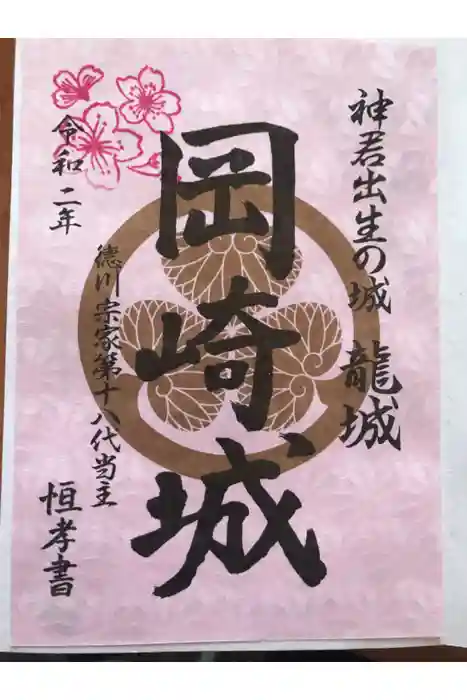 神君出生の城 龍城
岡崎城
令和二年
德川宗家第十八代当主
恒孝書